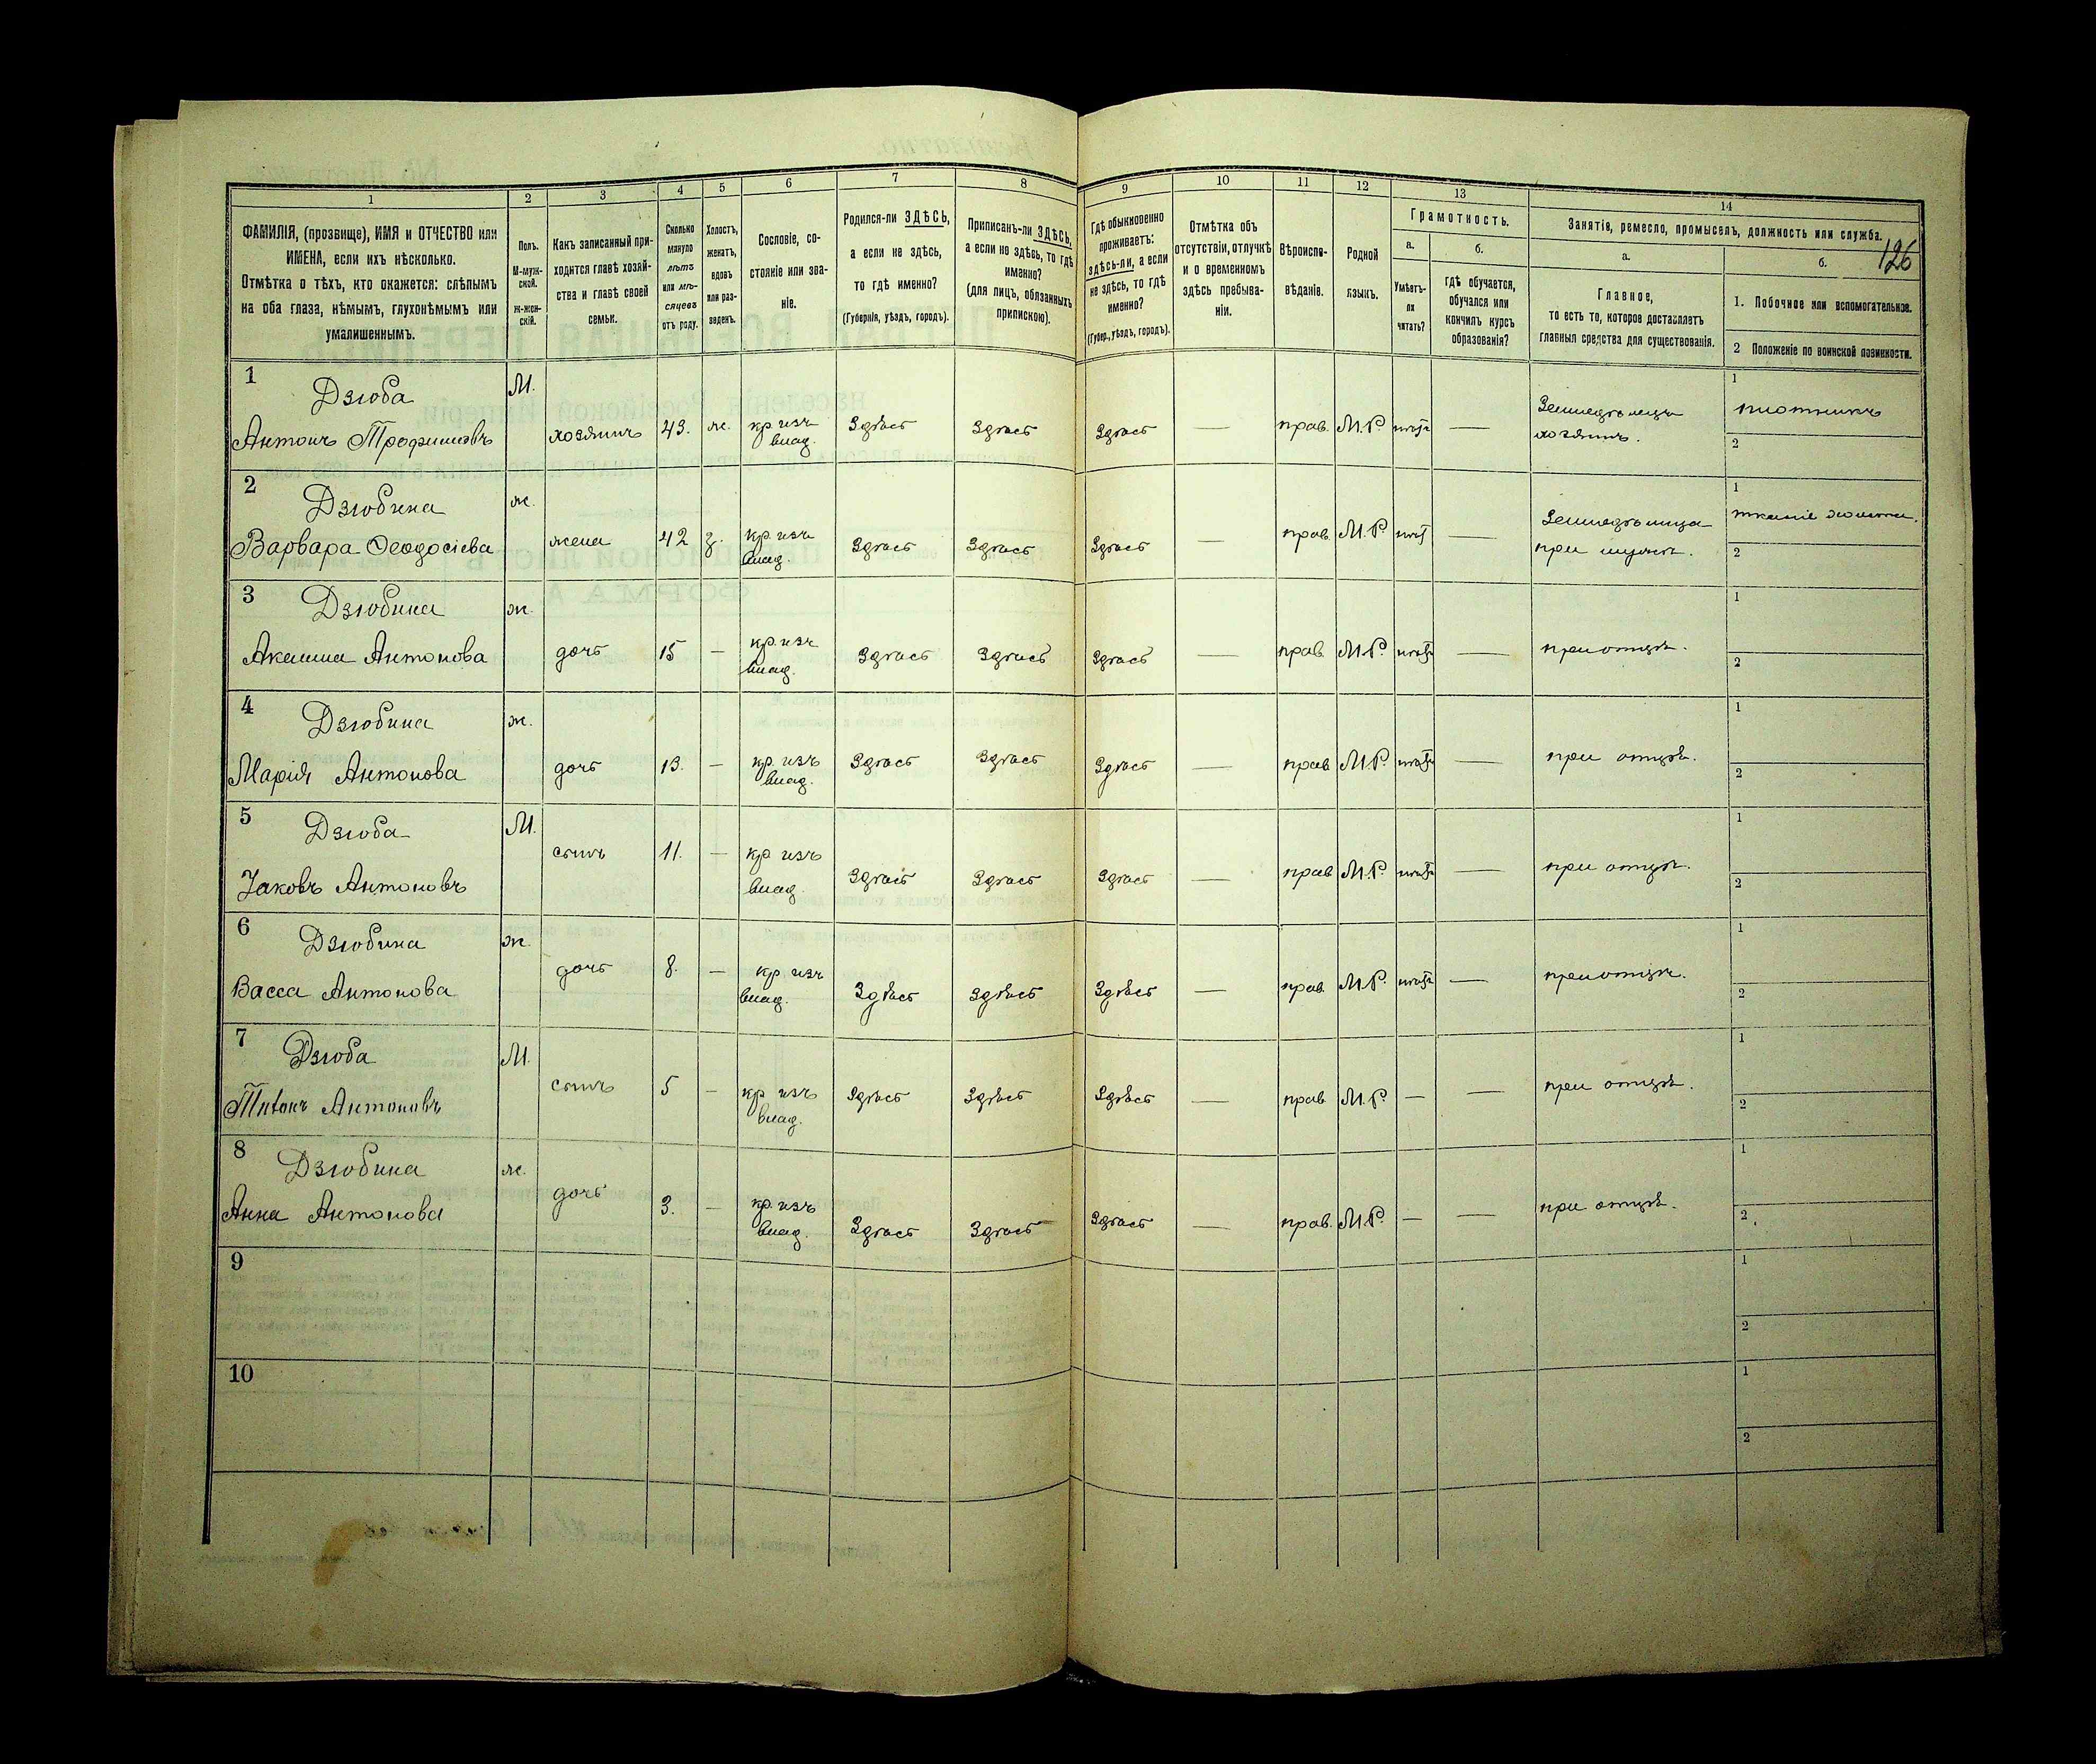 1 2 3 4 5 6 7 8 9 10 11 12 13 14
ФАМИЛІЯ, (прозвище), ИМЯ и ОТЧЕСТВО или
ИМЕНА, если ихъ нѣсколько.
Отмѣтка о тѣхъ, кто окажется: слѣпымъ
на оба глаза, нѣмымъ, глухонѣмымъ или
умалишеннымъ.
Полъ.
М-муж-
ской.
Ж-жен-
скій.
Какъ записанный при-
ходится главѣ хозяй-
ства и главѣ своей
семьи.
Сколько
минуло
лѣтъ
или мѣ-
сяцевъ
отъ роду.
Холостъ,
женатъ,
вдовъ
или раз-
веденъ.
Сословіе, со-
стояніе или зва-
ніе.
Родился-ли ЗДѢСЬ,
а если не здѣсь,
то гдѣ именно?
(Губернія, уѣздъ, городъ).
Приписанъ-ли ЗДѢСЬ,
а если не здѣсь, то гдѣ
именно?
(для лицъ, обязанныхъ
припискою).
Гдѣ обыкновенно
проживаетъ:
здѣсь-ли, а если
не здѣсь, то гдѣ
именно?
(Губер., уѣздъ, городъ).
Отмѣтка объ
отсутствіи, отлучкѣ
и о временномъ
здѣсь пребыва-
ніи.
Вѣроиспо-
вѣданіе.
Родной
языкъ.
Грамотность.
а.
Умѣетъ-
ли
читать?
б.
гдѣ обучается,
обучался или
кончилъ курсъ
образованія?
Занятія, ремесло, промыселъ, должность или служба.
126
а.
Главное,
то есть то, которое доставляетъ
главныя средства для существованія.
б.
1. Побочное или вспомогательное.
2 Положеніе по воинской повинности.
1 Дзюба М. 1
Антонъ Трофимовъ хозяинъ 43. ж. кр. изъ влад. Здѣсь Здѣсь Здѣсь — прав. М.Р. — Земледѣлецъ хозяинъ. плотникъ
2
2 Дзюбина ж. 1
Варвара Ѳеодосіева жена 42 з. кр. изъ влад. Здѣсь Здѣсь Здѣсь — прав. М.Р. — Земледѣлица при мужѣ. тканіе холста.
2
3 Дзюбина ж. 1
Антонова дочь 15 — кр. изъ влад. Здѣсь Здѣсь Здѣсь — прав. М.Р. — при отцѣ.
2
4 Дзюбина ж. 1
Марія Антонова дочь 13. — кр. изъ влад. Здѣсь Здѣсь Здѣсь — прав. М.Р. — при отцѣ.
2
5 Дзюба М. 1
Іаковъ Антоновъ сынъ 11. — кр. изъ влад. Здѣсь Здѣсь Здѣсь — прав. М.Р. — при отцѣ.
2
6 Дзюбина ж. 1
Васса Антонова дочь 8. — кр. изъ влад. Здѣсь Здѣсь Здѣсь — прав. М.Р. — при отцѣ.
2
7 Дзюба М. 1
Антоновъ сынъ 5 — кр. изъ влад. Здѣсь Здѣсь Здѣсь — прав. М.Р. — — при отцѣ.
2
8 Дзюбина ж. 1
Анна Антонова дочь 3. — кр. изъ влад. Здѣсь Здѣсь Здѣсь — прав. М.Р. — — при отцѣ.
2
9 1
2
10 1
2